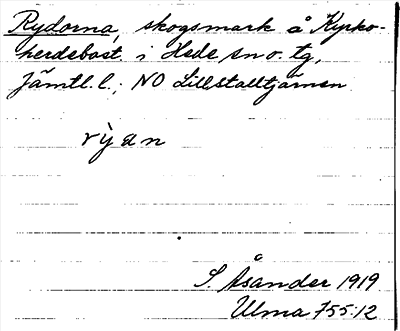 Rydorna, skogsmark å Kyrko-
herdebost. i Hede sn o. tg,
Jämtl. l.; NO Lillstalltjärnen
rỳan
S. Åsander 1919
Ulma 755:12